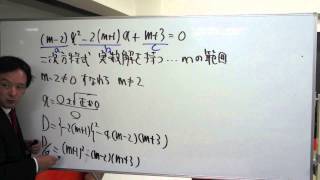 (m-2)x²-2(m+1)x+m+3=0
a b c
二次方程式 実数解を持つ…mの範囲
m-2≠0 すなわち m≠2
D={-2(m+1)}²-4(m-2)(m+3)
D/4=(m+1)²-(m-2)(m+3)